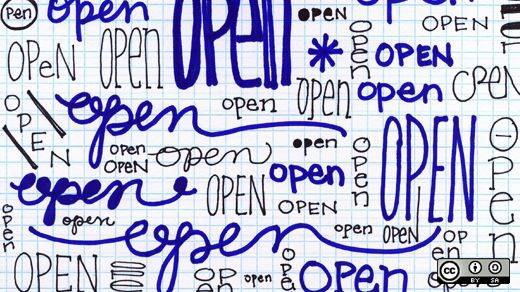 pen
open
open
open
open
OPEN
OPeN
open
open
OPEN
open
open
open
open
OPEN
open
open
OPEN
open
open
open
OPEN
open
open
open
OPEN
open
OPEN
open
open
open
open
open
open
open
OPEN
open
open
open
open
cc BY SA